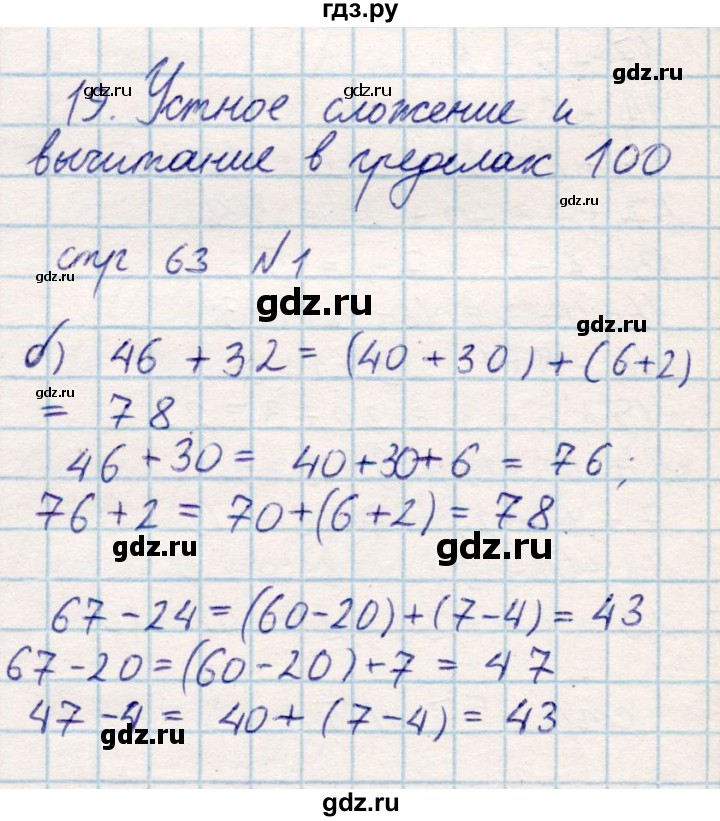 гдз.ру
gdz.ru
19. Устное сложение и
вычитание в пределах 100
gdz.ru
gdz.ru
стр 63 №1
gdz.ru
gdz.ru
gdz.ru
б) 46 + 32 = (40 + 30) + (6+2)
gdz.ru
= 78.
46 + 30 = 40+30+6 = 76;
76 + 2 = 70+(6+2) = 78.
gdz.ru
gdz.ru
67 - 24 = (60-20)+(7-4) = 43
67 - 20 = (60-20)+7 = 47
47 - 4 = 40+ (7-4) = 43
gdz.ru
gdz.ru
gdz.ru